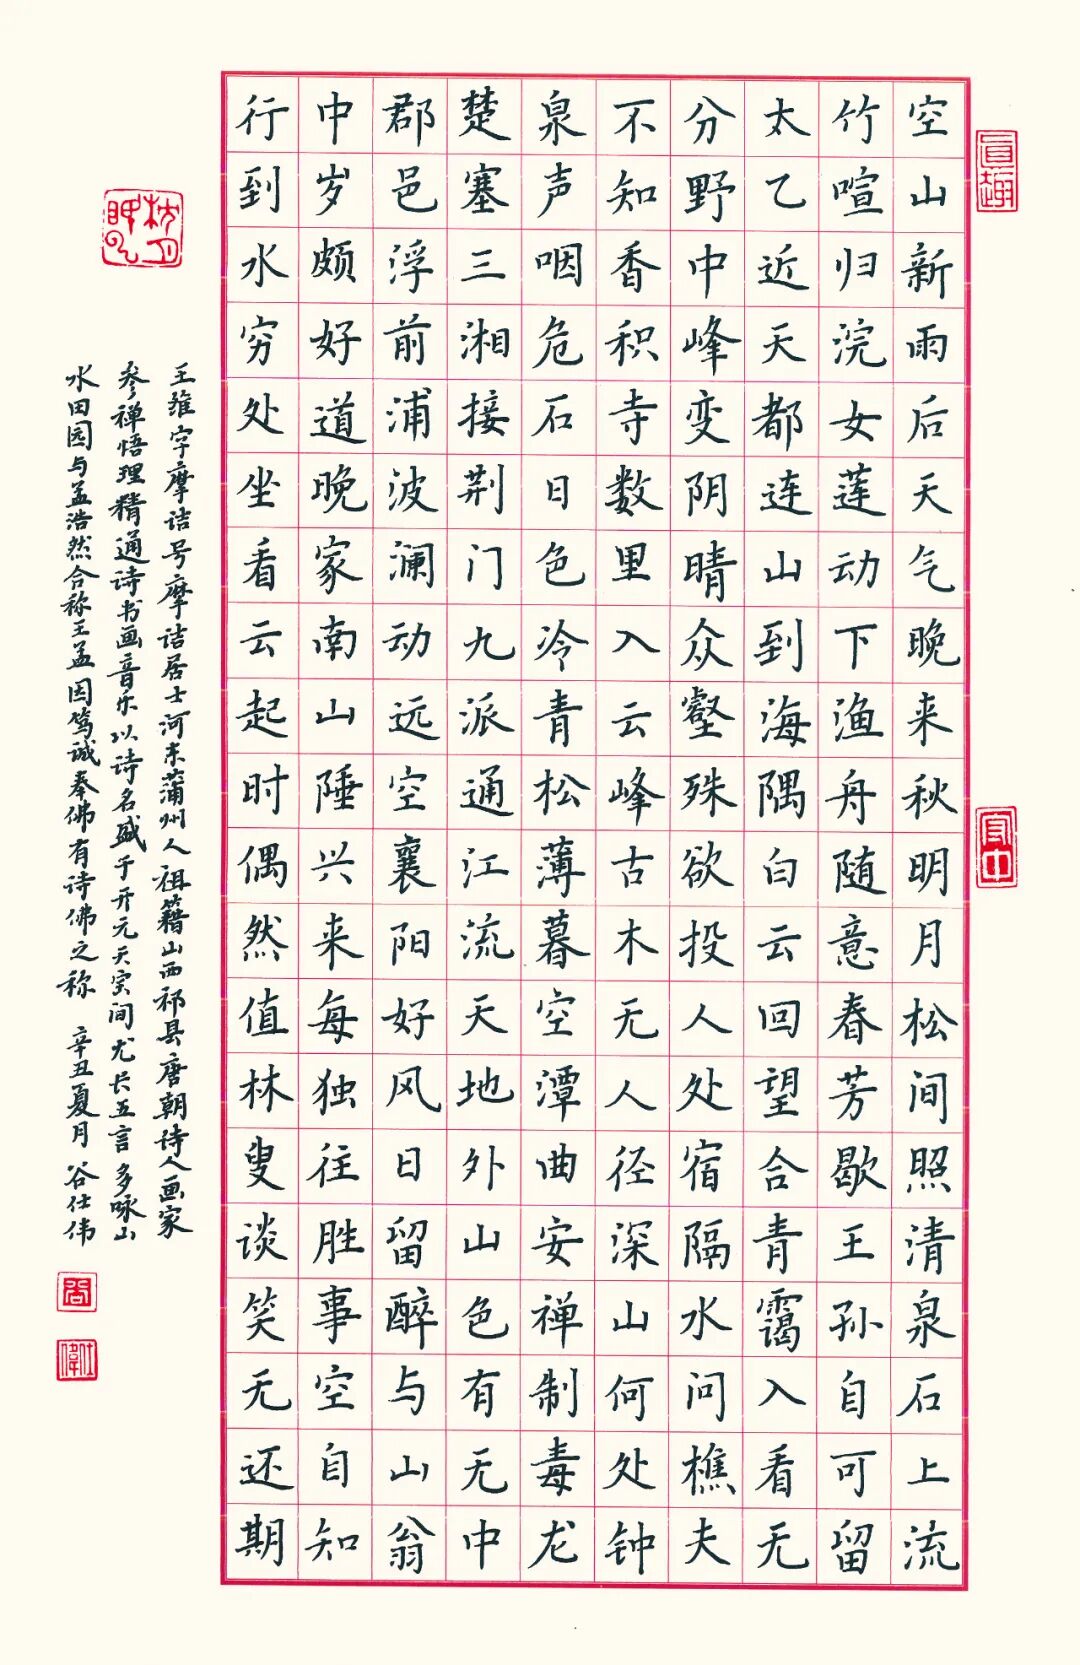 空山新雨后天气晚来秋明月松间照清泉石上流
竹喧归浣女莲动下渔舟随意春芳歇王孙自可留
太乙近天都连山到海隅白云回望合青霭入看无
分野中峰变阴晴众壑殊欲投人处宿隔水问樵夫
不知香积寺数里入云峰古木无人径深山何处钟
泉声咽危石日色冷青松薄暮空潭曲安禅制毒龙
楚塞三湘接荆门九派通江流天地外山色有无中
郡邑浮前浦波澜动远空襄阳好风日留醉与山翁
中岁颇好道晚家南山陲兴来每独往胜事空自知
行到水穷处坐看云起时偶然值林叟谈笑无还期
王维字摩诘号摩诘居士河东蒲州人祖籍山西祁县唐朝诗人画家
参禅悟理精通诗书画音乐以诗名盛于开元天宝间尤长五言多咏山
水田园与孟浩然合称王孟因笃诚奉佛有诗佛之称 辛丑夏月 谷仕伟
谷
仕偉